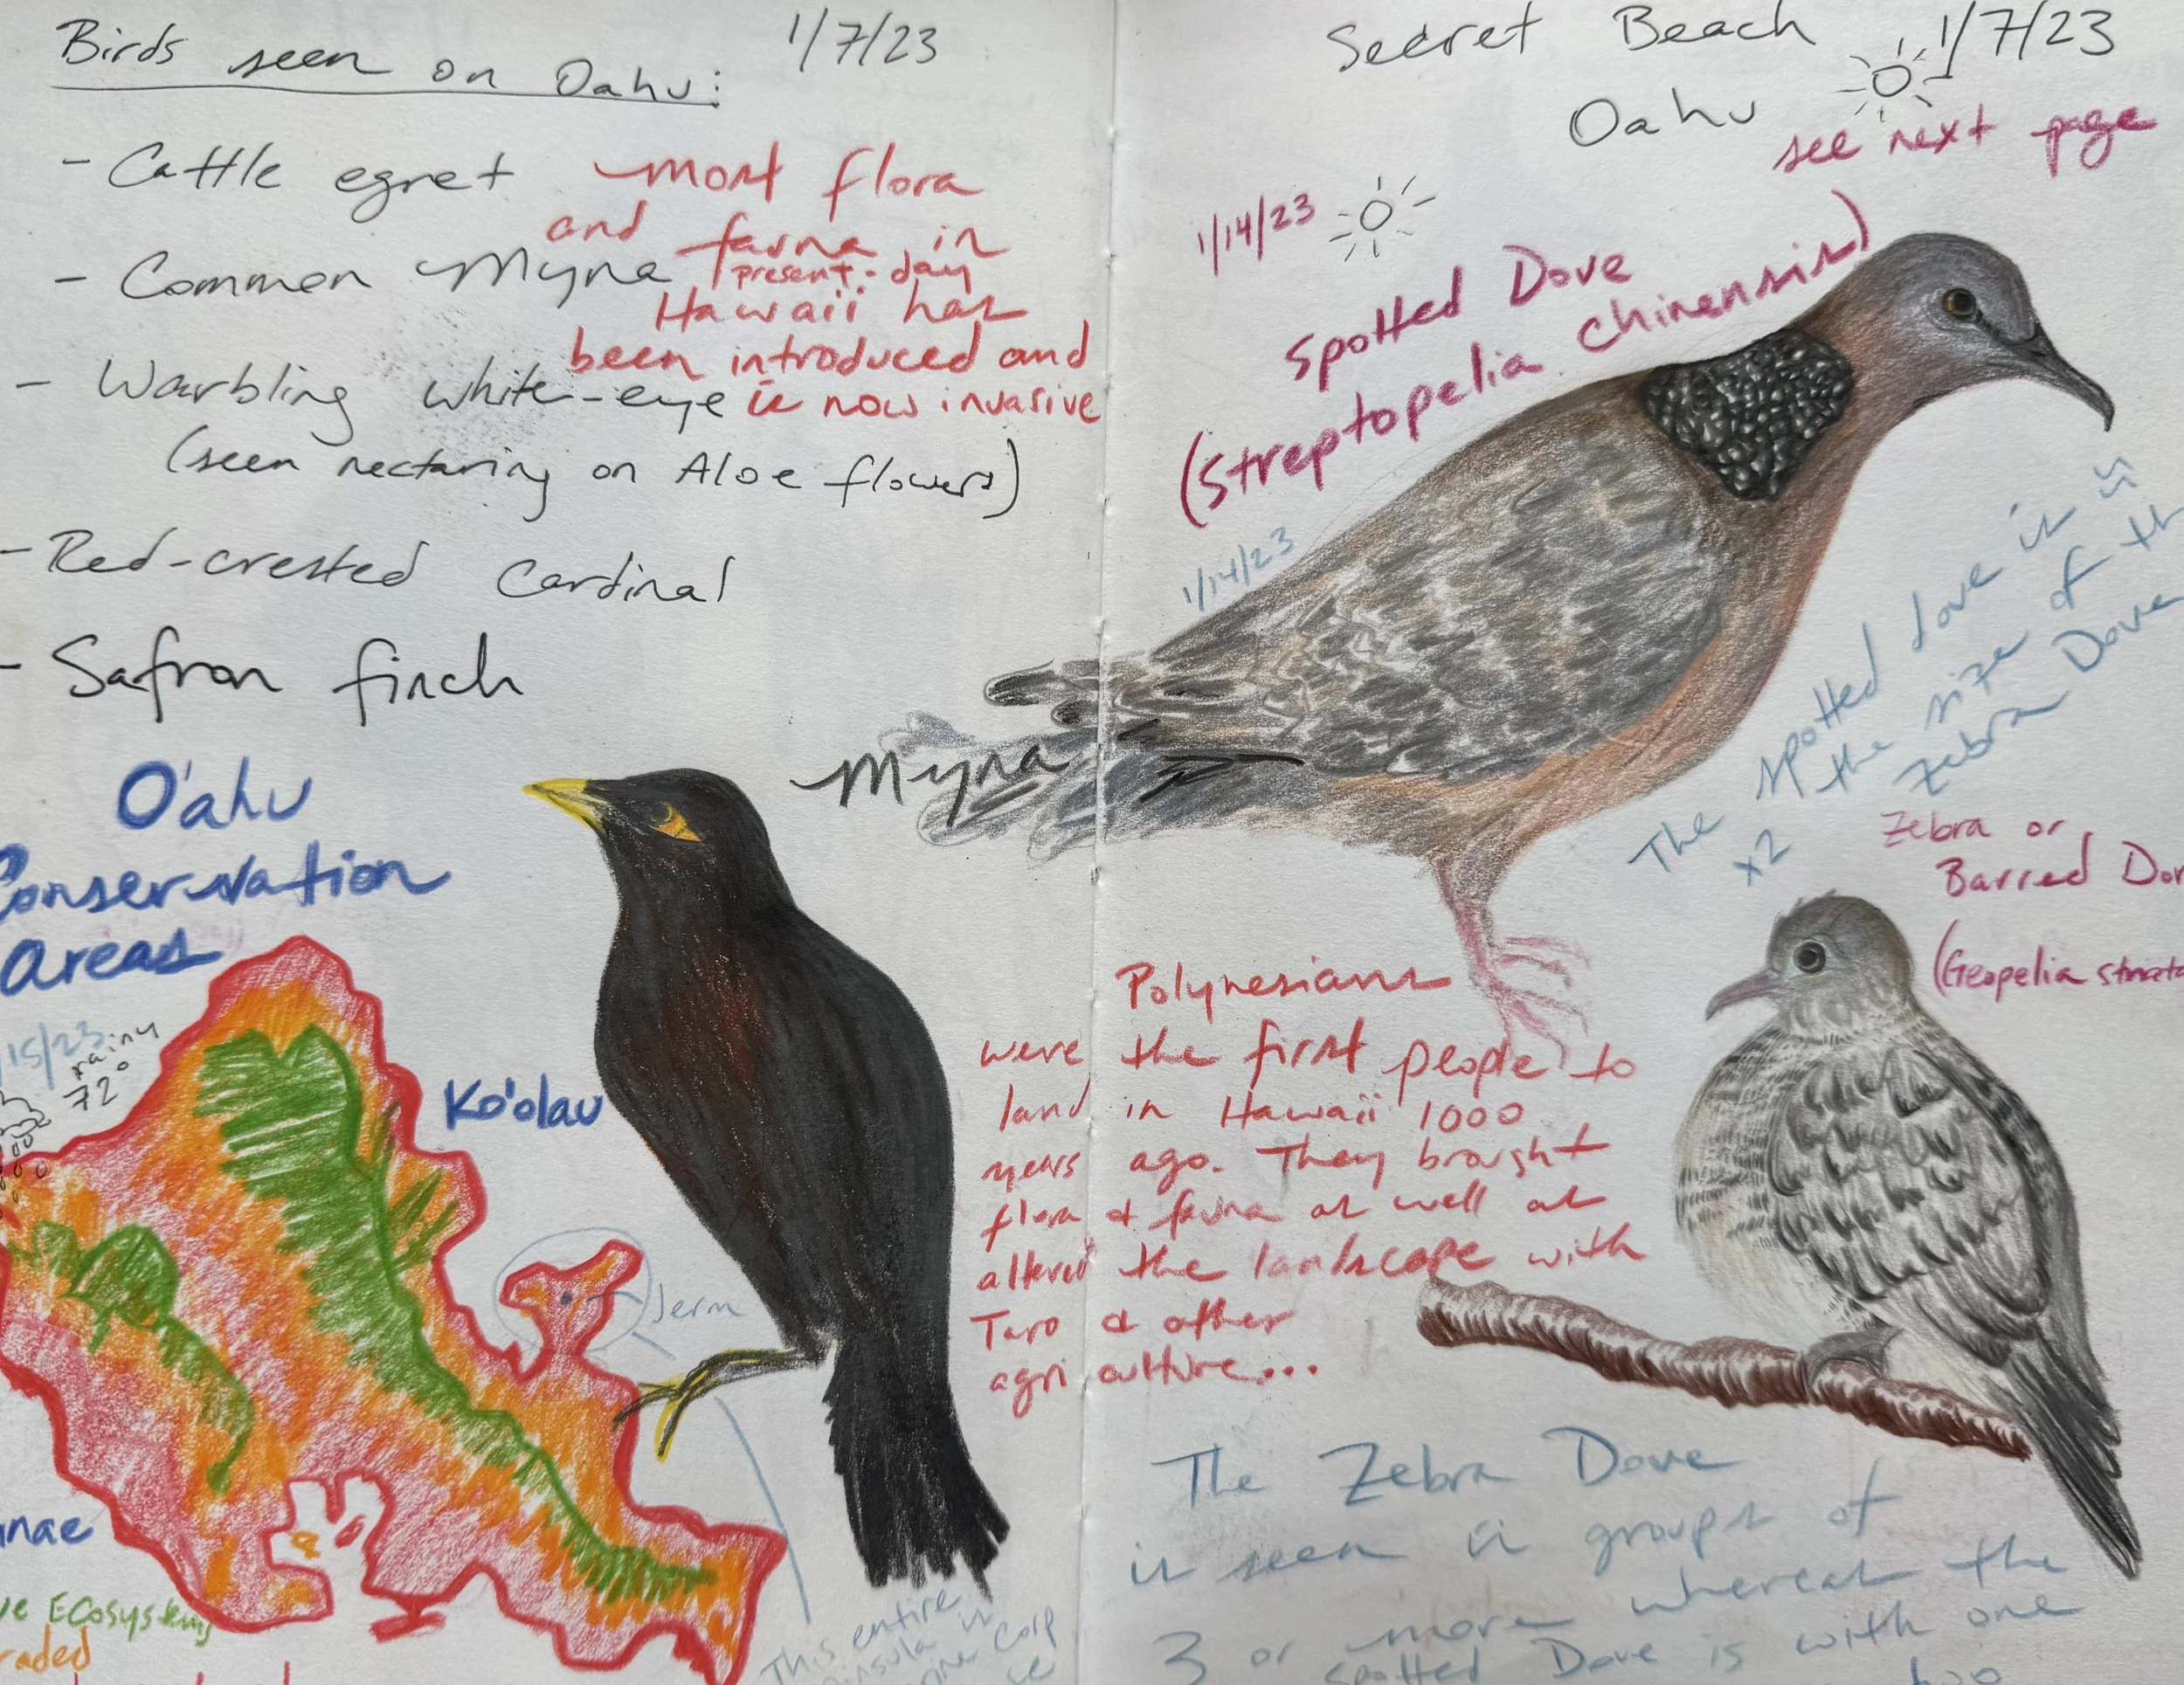 Birds seen on Oahu:
1/7/23
- Cattle egret
- Common Myna
- Warbling white-eye
(seen nectaring on Aloe flowers)
- Red-crested Cardinal
- Safron finch
most flora
and fauna in
present-day
Hawaii has
been introduced and
is now invasive
O'ahu
Conservation
Areas
15/23
rainy
72°
Ko'olau
Jerm
nae
ve Ecosystems
raded
Myna
This entire
insula is
rine Corp
Secret Beach
1/7/23
Oahu
see next page
1/14/23
Spotted Dove
(Streptopelia chinensis)
1/14/23
The spotted dove is
x2 the size of th
Zebra Dove
Zebra or
Barred Dov
(Geopelia striata
Polynesians
were the first people to
land in Hawaii 1000
years ago. They brought
flora & fauna as well as
altered the landscape with
Taro & other
agriculture...
The Zebra Dove
is seen in groups of
3 or more whereas the
spotted Dove is with one
two